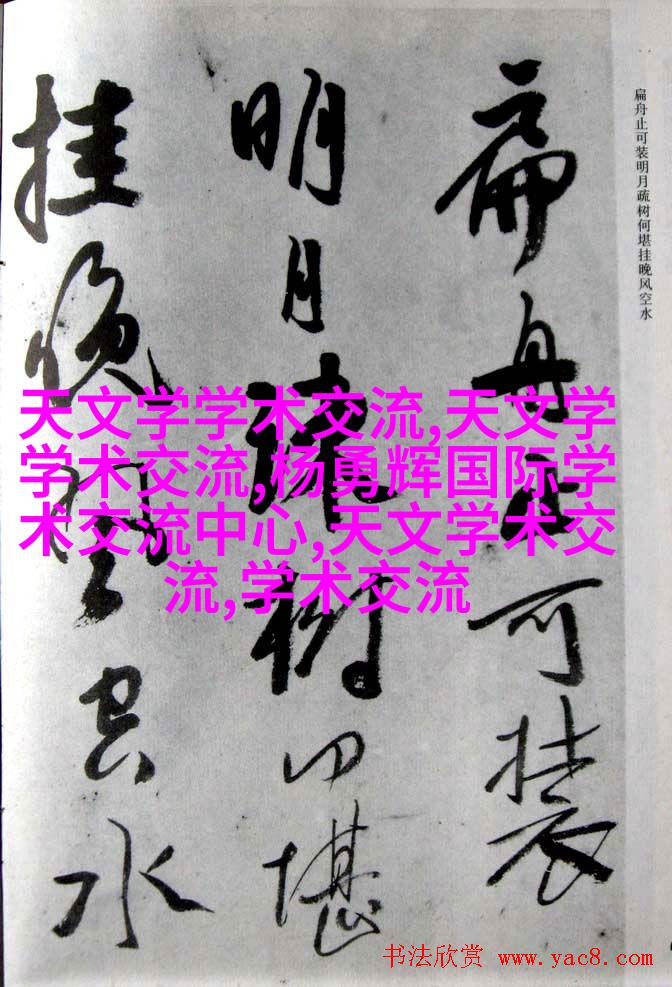 扁舟止可装
明月疏树何堪
挂晚风空水
扁舟止可装明月疏树何堪挂晚风空水
天文学学术交流,天文学
学术交流,杨勇辉国际学
术交流中心,天文学术交
流,学术交流
书法欣赏 www.yac8.com